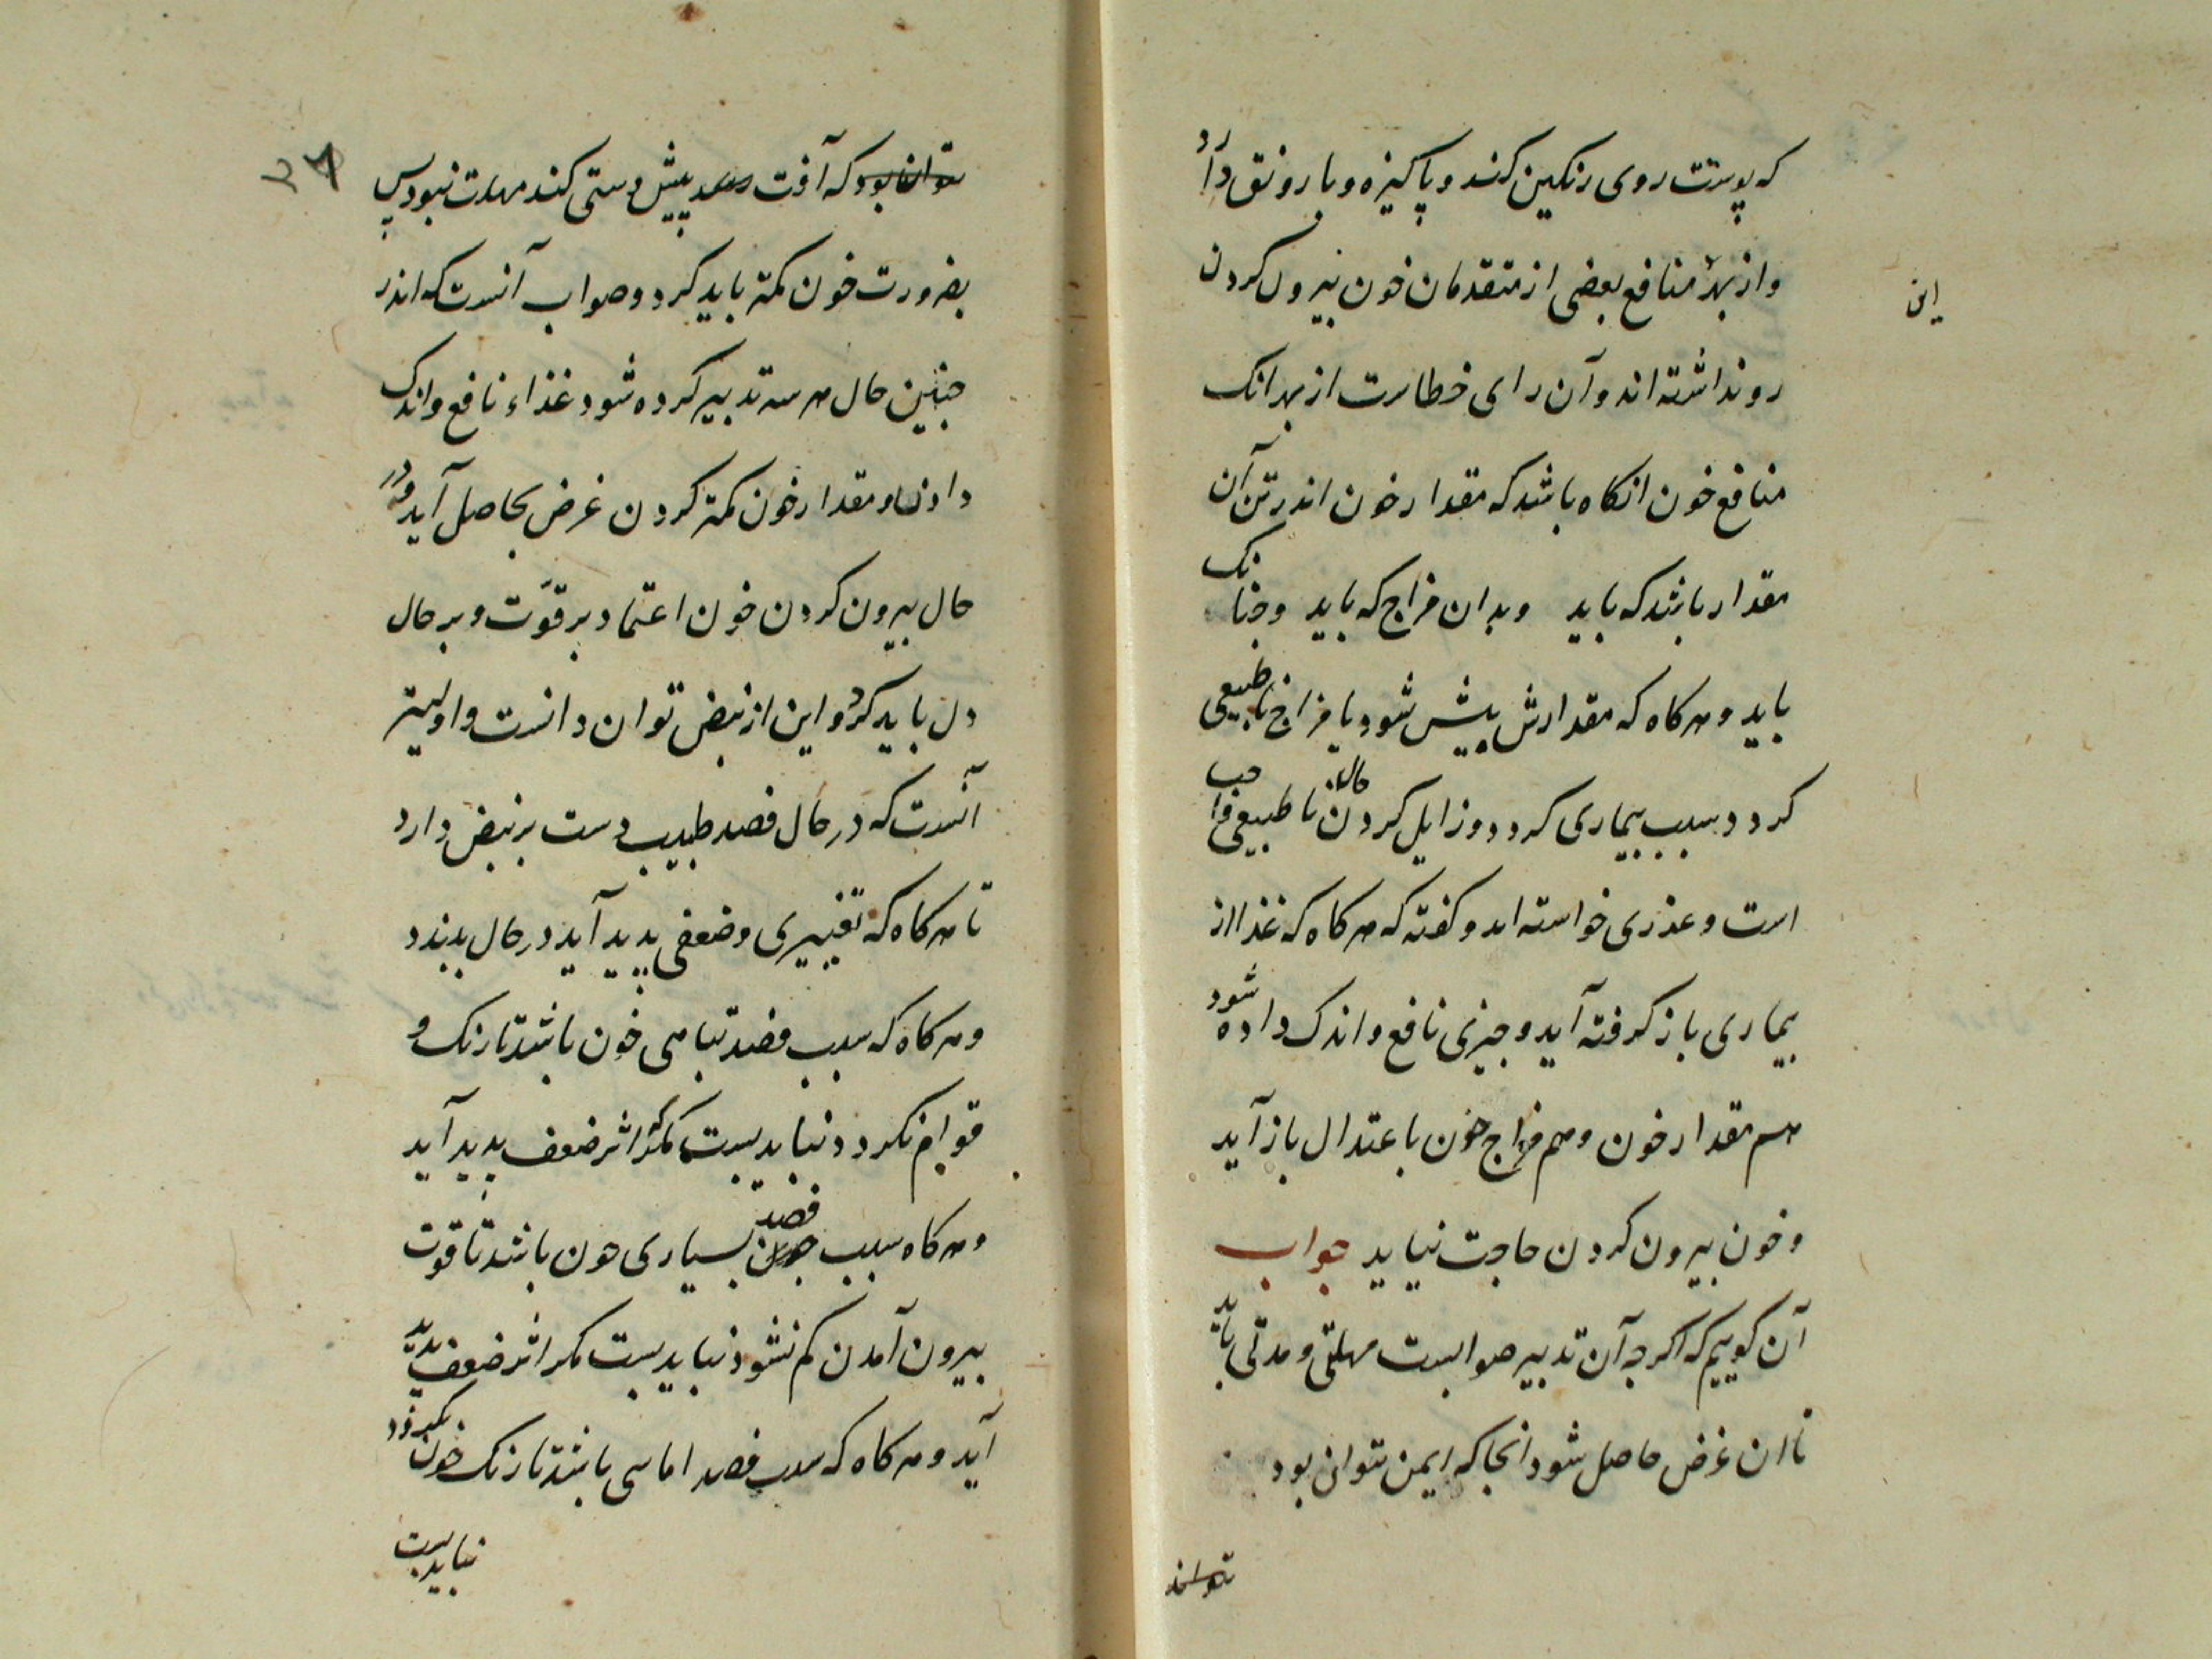 که پوست روی رنکین کند و پاکیزه و با رونق دارد
و از بهر منافع بعضی از متقدمان خون بیرون کردن
این
روا نداشته اند و آن رای خطاست از بهر انک
منافع خون انکاه باشد که مقدار خون اندر تن آن
مقدار باشد که باید و بدان مزاج که باید و جنانک
باید و هرکاه که مقدارش بیش شود یا مزاج ناطبیعی
کردد سبب بیماری کردد و زایل کردن حال ناطبیعی واجب
است و عذری خواسته اند و کفته که هرکاه که غذا از
بیماری باز کرفته آید و جیزی نافع و اندک داده شود
هم مقدار خون و هم مزاج خون باعتدال باز آید
و خون بیرون کردن حاجت نیاید جواب
آن کوییم که اکرجه آن تدبیر صوابست مهلتی و مدتی باید
تا ان غرض حاصل شود انجا که ایمن نتوان بود
که آفت پیش دستی کند مهلت نبود پس
بضرورت خون کمتر باید کرد و صواب آنست که اندر
جنین حال هر سه تدبیر کرده شود غذاء نافع و اندک
دادن و مقدار خون کمتر کردن غرض بحاصل آید و در
حال بیرون کردن خون اعتماد بر قوّت و بر حال
دل باید کرد و این از نبض توان دانست و اولیتر
آنست که در حال فصد طبیب دست بر نبض دارد
تا هرکاه که تغییری و ضعفی پدید آید در حال ببندد
و هرکاه که سبب فصد تباهی خون باشد تا رنک و
قوام نکردد نباید بست مکر که اثر ضعف پدید آید
و هرکاه سبب فصد بسیاری خون باشد تا قوت
بیرون آمدن کم نشود نباید بست مکر اثر ضعف پدید
آید و هرکاه که سبب فصد اماسی باشد تا رنک خون
نباید بست